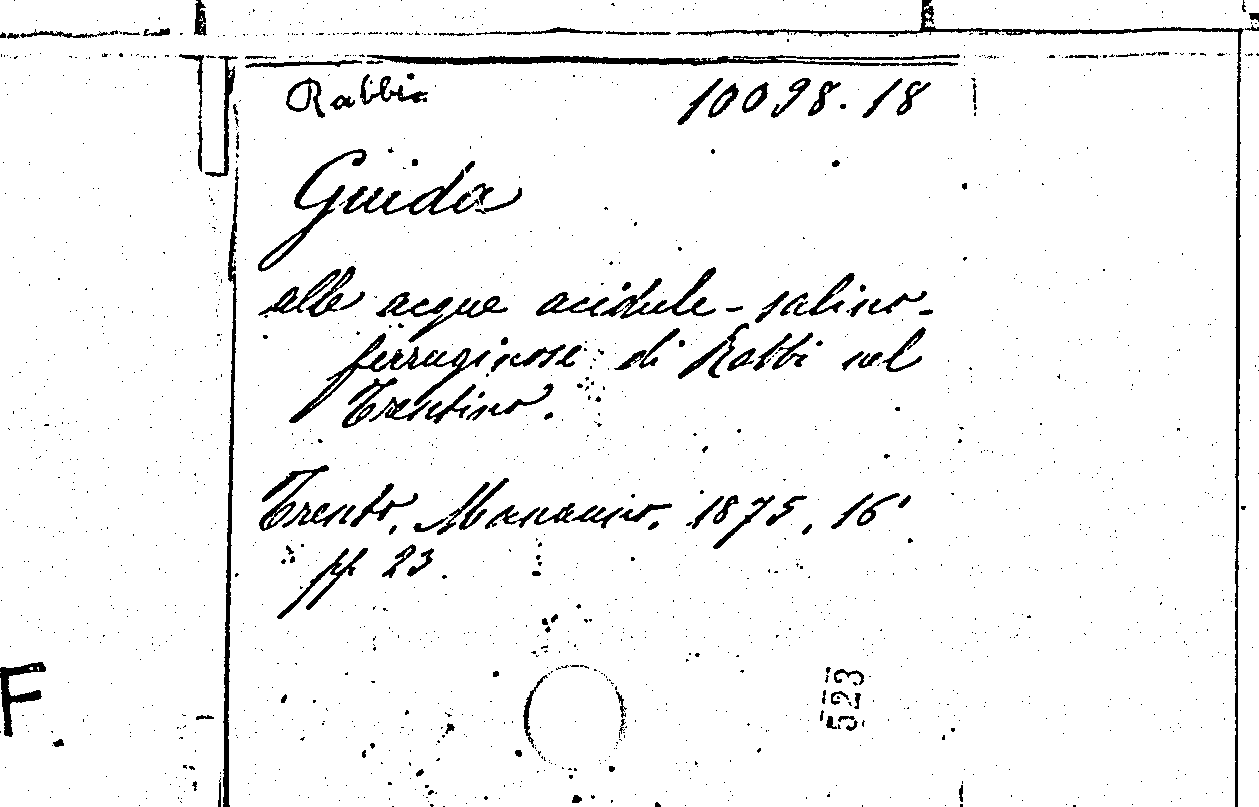 Rabbi
10098.18
Guida
alle acque acidule-salino-
ferruginose di Rabbi nel
Trentino.
Trento, 1875, 16°
pp 23.
F
523